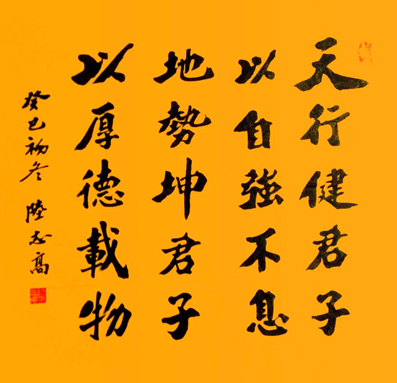 天行健君子
以自強不息
地勢坤君子
以厚德載物
癸巳初冬 陸志高